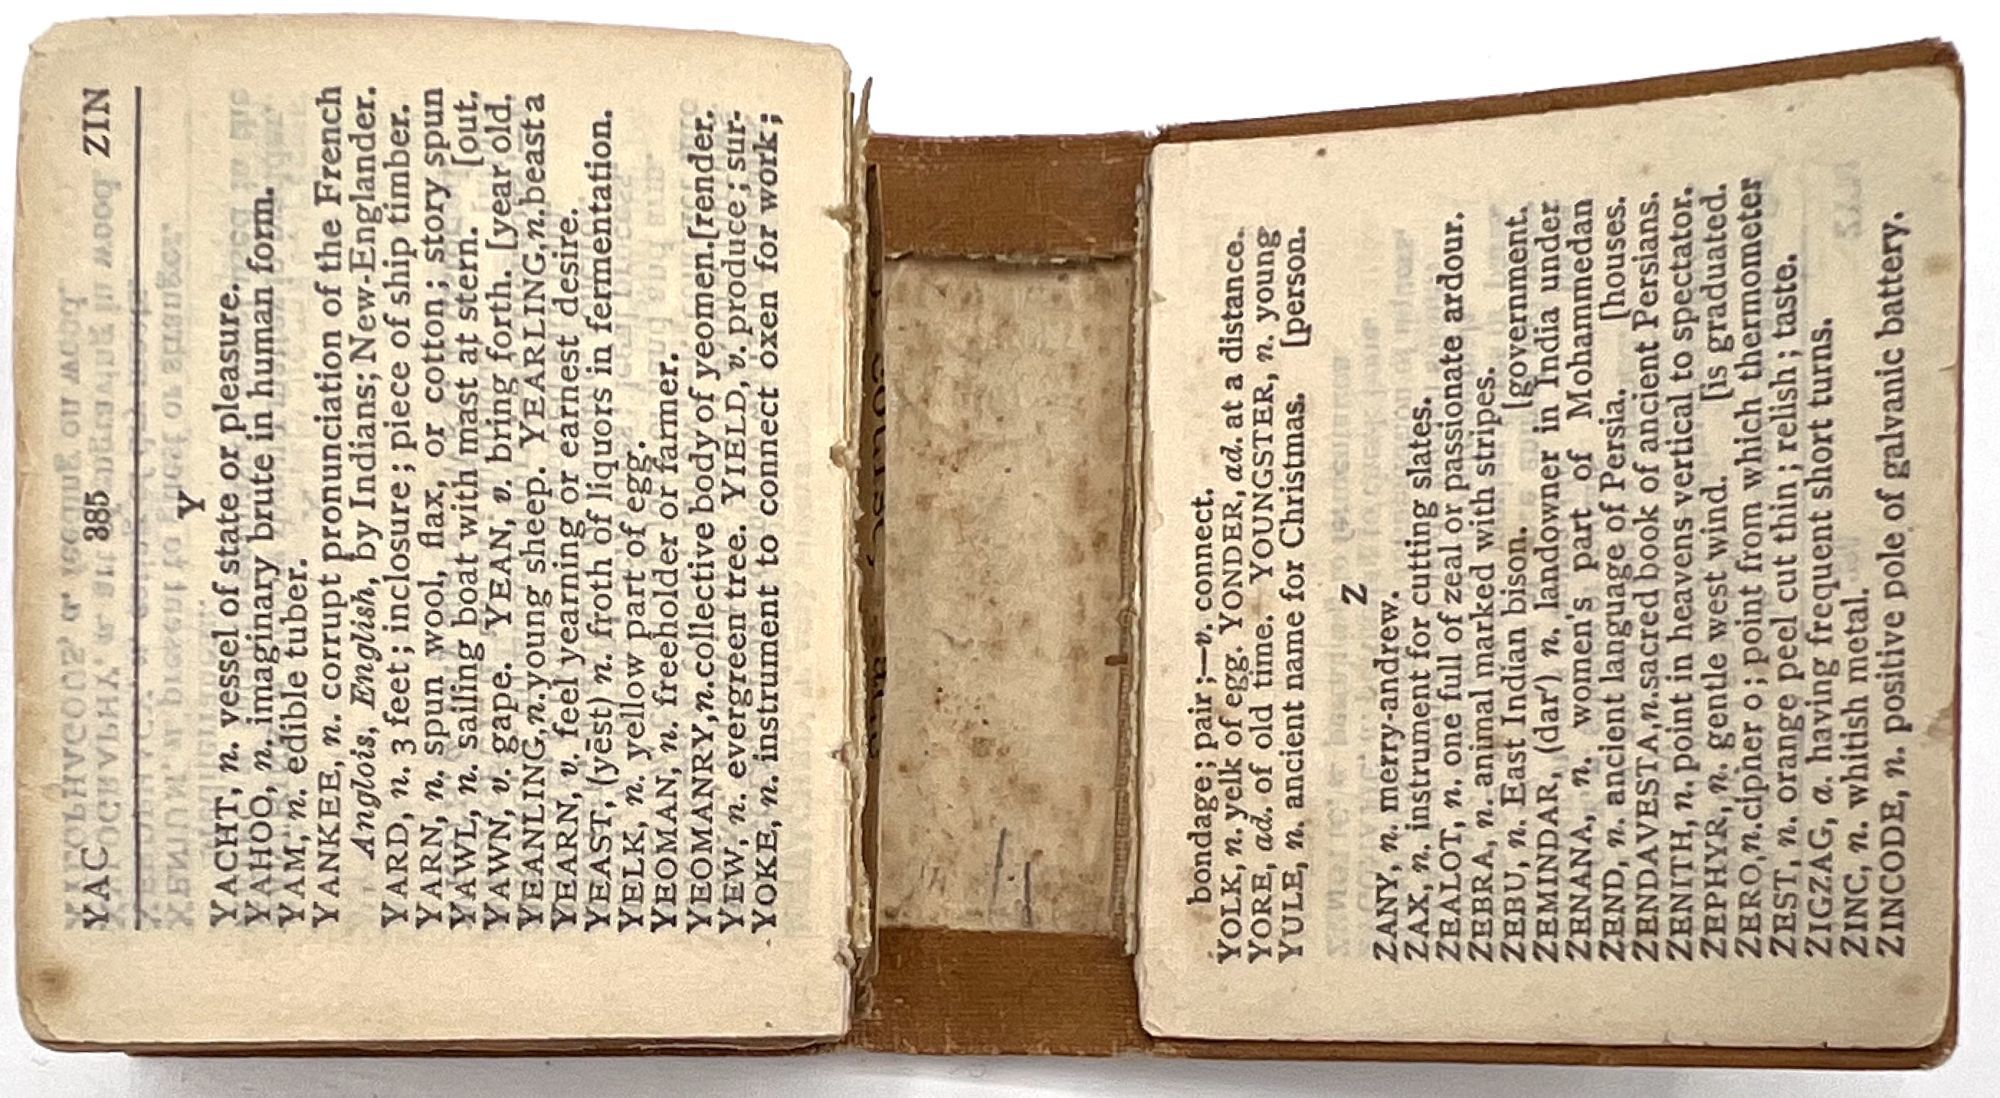 YAC 385 ZIN
Y
YACHT, n. vessel of state or pleasure.
YAHOO, n. imaginary brute in human form.
YAM, n. edible tuber.
YANKEE, n. corrupt pronunciation of the French
Anglois, English, by Indians; New-Englander.
YARD, n. 3 feet; inclosure; piece of ship timber.
YARN, n. spun wool, flax, or cotton; story spun
YAWL, n. sailing boat with mast at stern. [out.
YAWN, v. gape. YEAN, v. bring forth. [year old.
YEANLING, n. young sheep. YEARLING, n. beast a
YEARN, v. feel yearning or earnest desire.
YEAST, (yēst) n. froth of liquors in fermentation.
YELK, n. yellow part of egg.
YEOMAN, n. freeholder or farmer.
YEOMANRY, n. collective body of yeomen. [render.
YEW, n. evergreen tree. YIELD, v. produce; sur-
YOKE, n. instrument to connect oxen for work;
bondage; pair;—v. connect.
YOLK, n. yelk of egg. YONDER, ad. at a distance.
YORE, ad. of old time. YOUNGSTER, n. young
YULE, n. ancient name for Christmas. [person.
Z
ZANY, n. merry-andrew.
ZAX, n. instrument for cutting slates.
ZEALOT, n. one full of zeal or passionate ardour.
ZEBRA, n. animal marked with stripes.
ZEBU, n. East Indian bison. [government.
ZEMINDAR, (dar') n. landowner in India under
ZENANA, n. women's part of Mohammedan
ZEND, n. ancient language of Persia. [houses.
ZENDAVESTA, n. sacred book of ancient Persians.
ZENITH, n. point in heavens vertical to spectator.
ZEPHYR, n. gentle west wind. [is graduated.
ZERO, n. cipher o; point from which thermometer
ZEST, n. orange peel cut thin; relish; taste.
ZIGZAG, a. having frequent short turns.
ZINC, n. whitish metal.
ZINCODE, n. positive pole of galvanic battery.